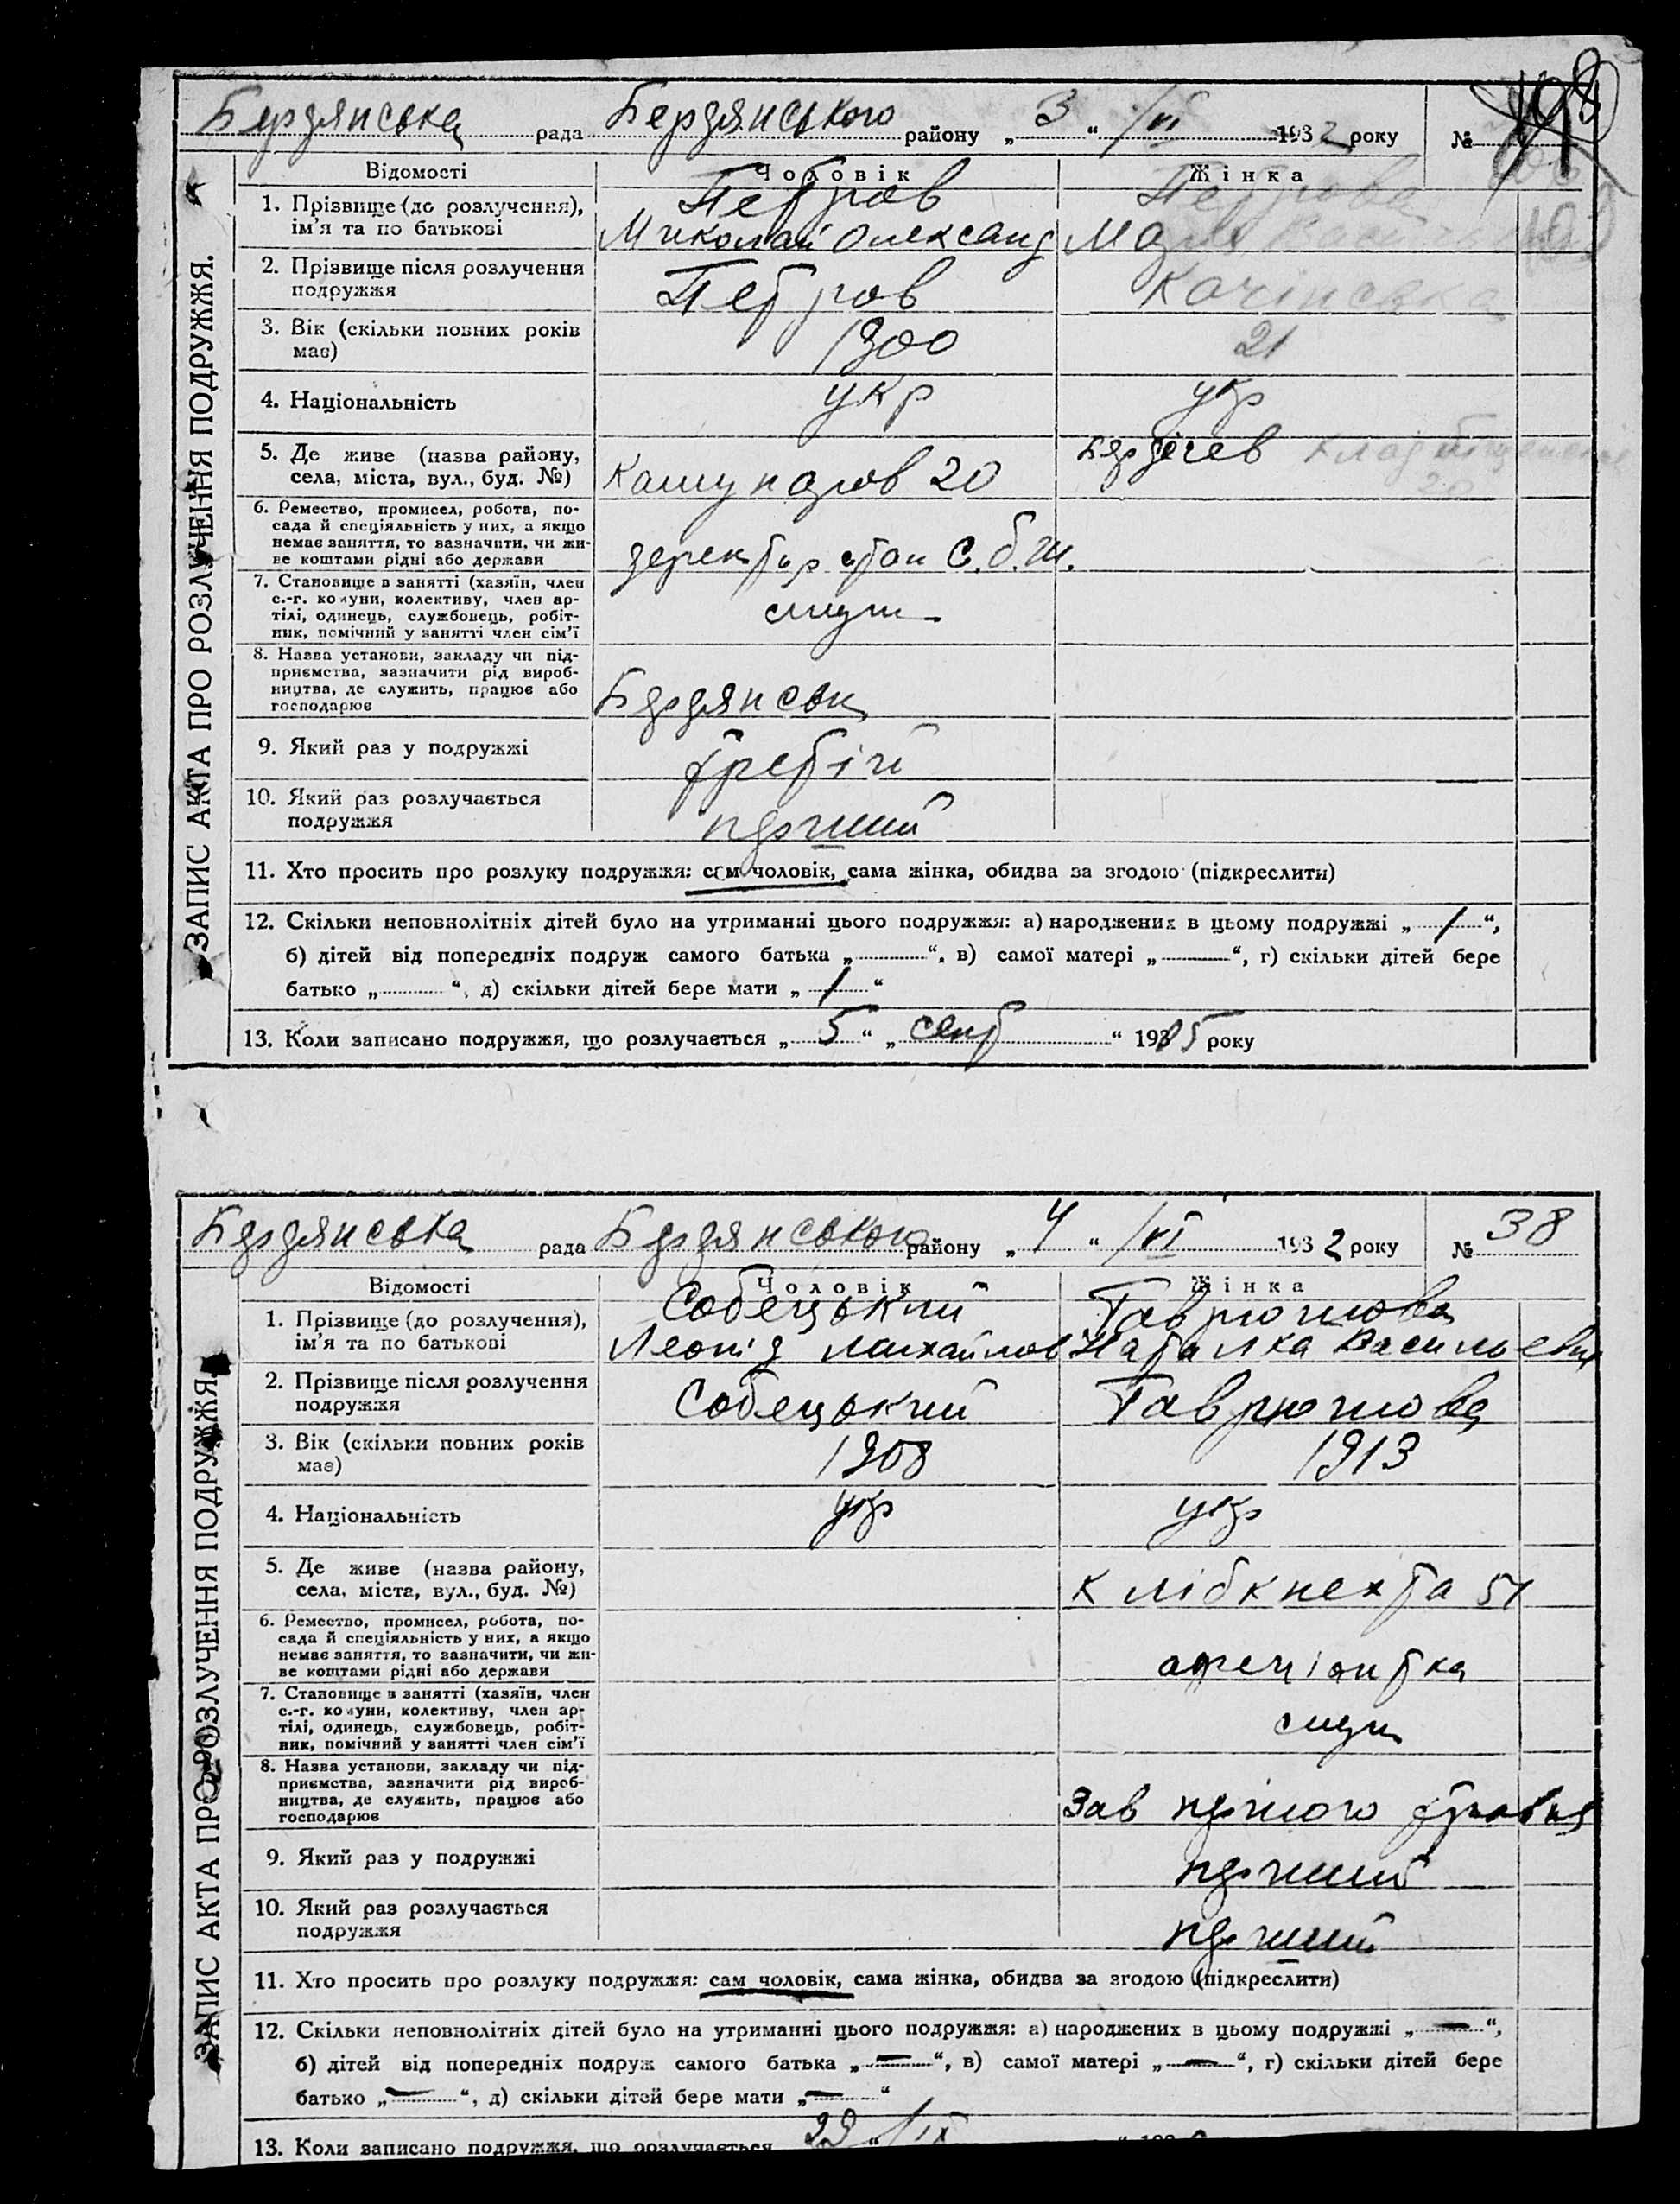 Бердянська рада Бердянського району „ 3 “ /VI 1932 року №
Відомості Чоловік Жінка
1. Прізвище (до розлучення), ім'я та по батькові
Петров Петрова
Миколай Олександ
2. Прізвище після розлучення подружжя
Петров
3. Вік (скільки повних років має)
1900 21
4. Національність
укр укр
5. Де живе (назва району, села, міста, вул., буд. №)
20 Бердічев
6. Ремество, промисел, робота, по-
сада й спеціяльність у них, а якщо
немає заняття, то зазначити, чи жи-
ве коштами рідні або держави
7. Становище в занятті (хазяїн, член
с.-г. комуни, колективу, член ар-
тілі, одинець, службовець, робіт-
ник, помічний у занятті член сім'ї
служ
8. Назва установи, закладу чи під-
приємства, зазначити рід вироб-
ництва, де служить, працює або
господарює
Бердянськ
9. Який раз у подружжі
третій
10. Який раз розлучається подружжя
перший
11. Хто просить про розлуку подружжя: сам чоловік, сама жінка, обидва за згодою (підкреслити)
12. Скільки неповнолітніх дітей було на утриманні цього подружжя: а) народжених в цьому подружжі „ 1 “,
б) дітей від попередніх подруж самого батька „ “, в) самої матері „ “, г) скільки дітей бере
батько „ “, д) скільки дітей бере мати „ 1 “
13. Коли записано подружжя, що розлучається „ 5 “ „ сент “ року
ЗАПИС АКТА ПРО РОЗЛУЧЕННЯ ПОДРУЖЖЯ.
Бердянська рада Бердянського району „ 4 “ /VI 1932 року № 38
Відомості Чоловік Жінка
1. Прізвище (до розлучення), ім'я та по батькові
Собецький Гаврюшова
Леонід Михайлов Наталка Васильевн
2. Прізвище після розлучення подружжя
Собецький Гаврюшова
3. Вік (скільки повних років має)
1908 1913
4. Національність
укр укр
5. Де живе (назва району, села, міста, вул., буд. №)
К Лібкнехта 51
6. Ремество, промисел, робота, по-
сада й спеціяльність у них, а якщо
немає заняття, то зазначити, чи жи-
ве коштами рідні або держави
7. Становище в занятті (хазяїн, член
с.-г. комуни, колективу, член ар-
тілі, одинець, службовець, робіт-
ник, помічний у занятті член сім'ї
служ
8. Назва установи, закладу чи під-
приємства, зазначити рід вироб-
ництва, де служить, працює або
господарює
Зав першого травня
9. Який раз у подружжі
перший
10. Який раз розлучається подружжя
перший
11. Хто просить про розлуку подружжя: сам чоловік, сама жінка, обидва за згодою (підкреслити)
12. Скільки неповнолітніх дітей було на утриманні цього подружжя: а) народжених в цьому подружжі „ — “,
б) дітей від попередніх подруж самого батька „ — “, в) самої матері „ — “, г) скільки дітей бере
батько „ — “, д) скільки дітей бере мати „ — “
13. Коли записано подружжя, що розлучається 29 /IX
ЗАПИС АКТА ПРО РОЗЛУЧЕННЯ ПОДРУЖЖЯ.